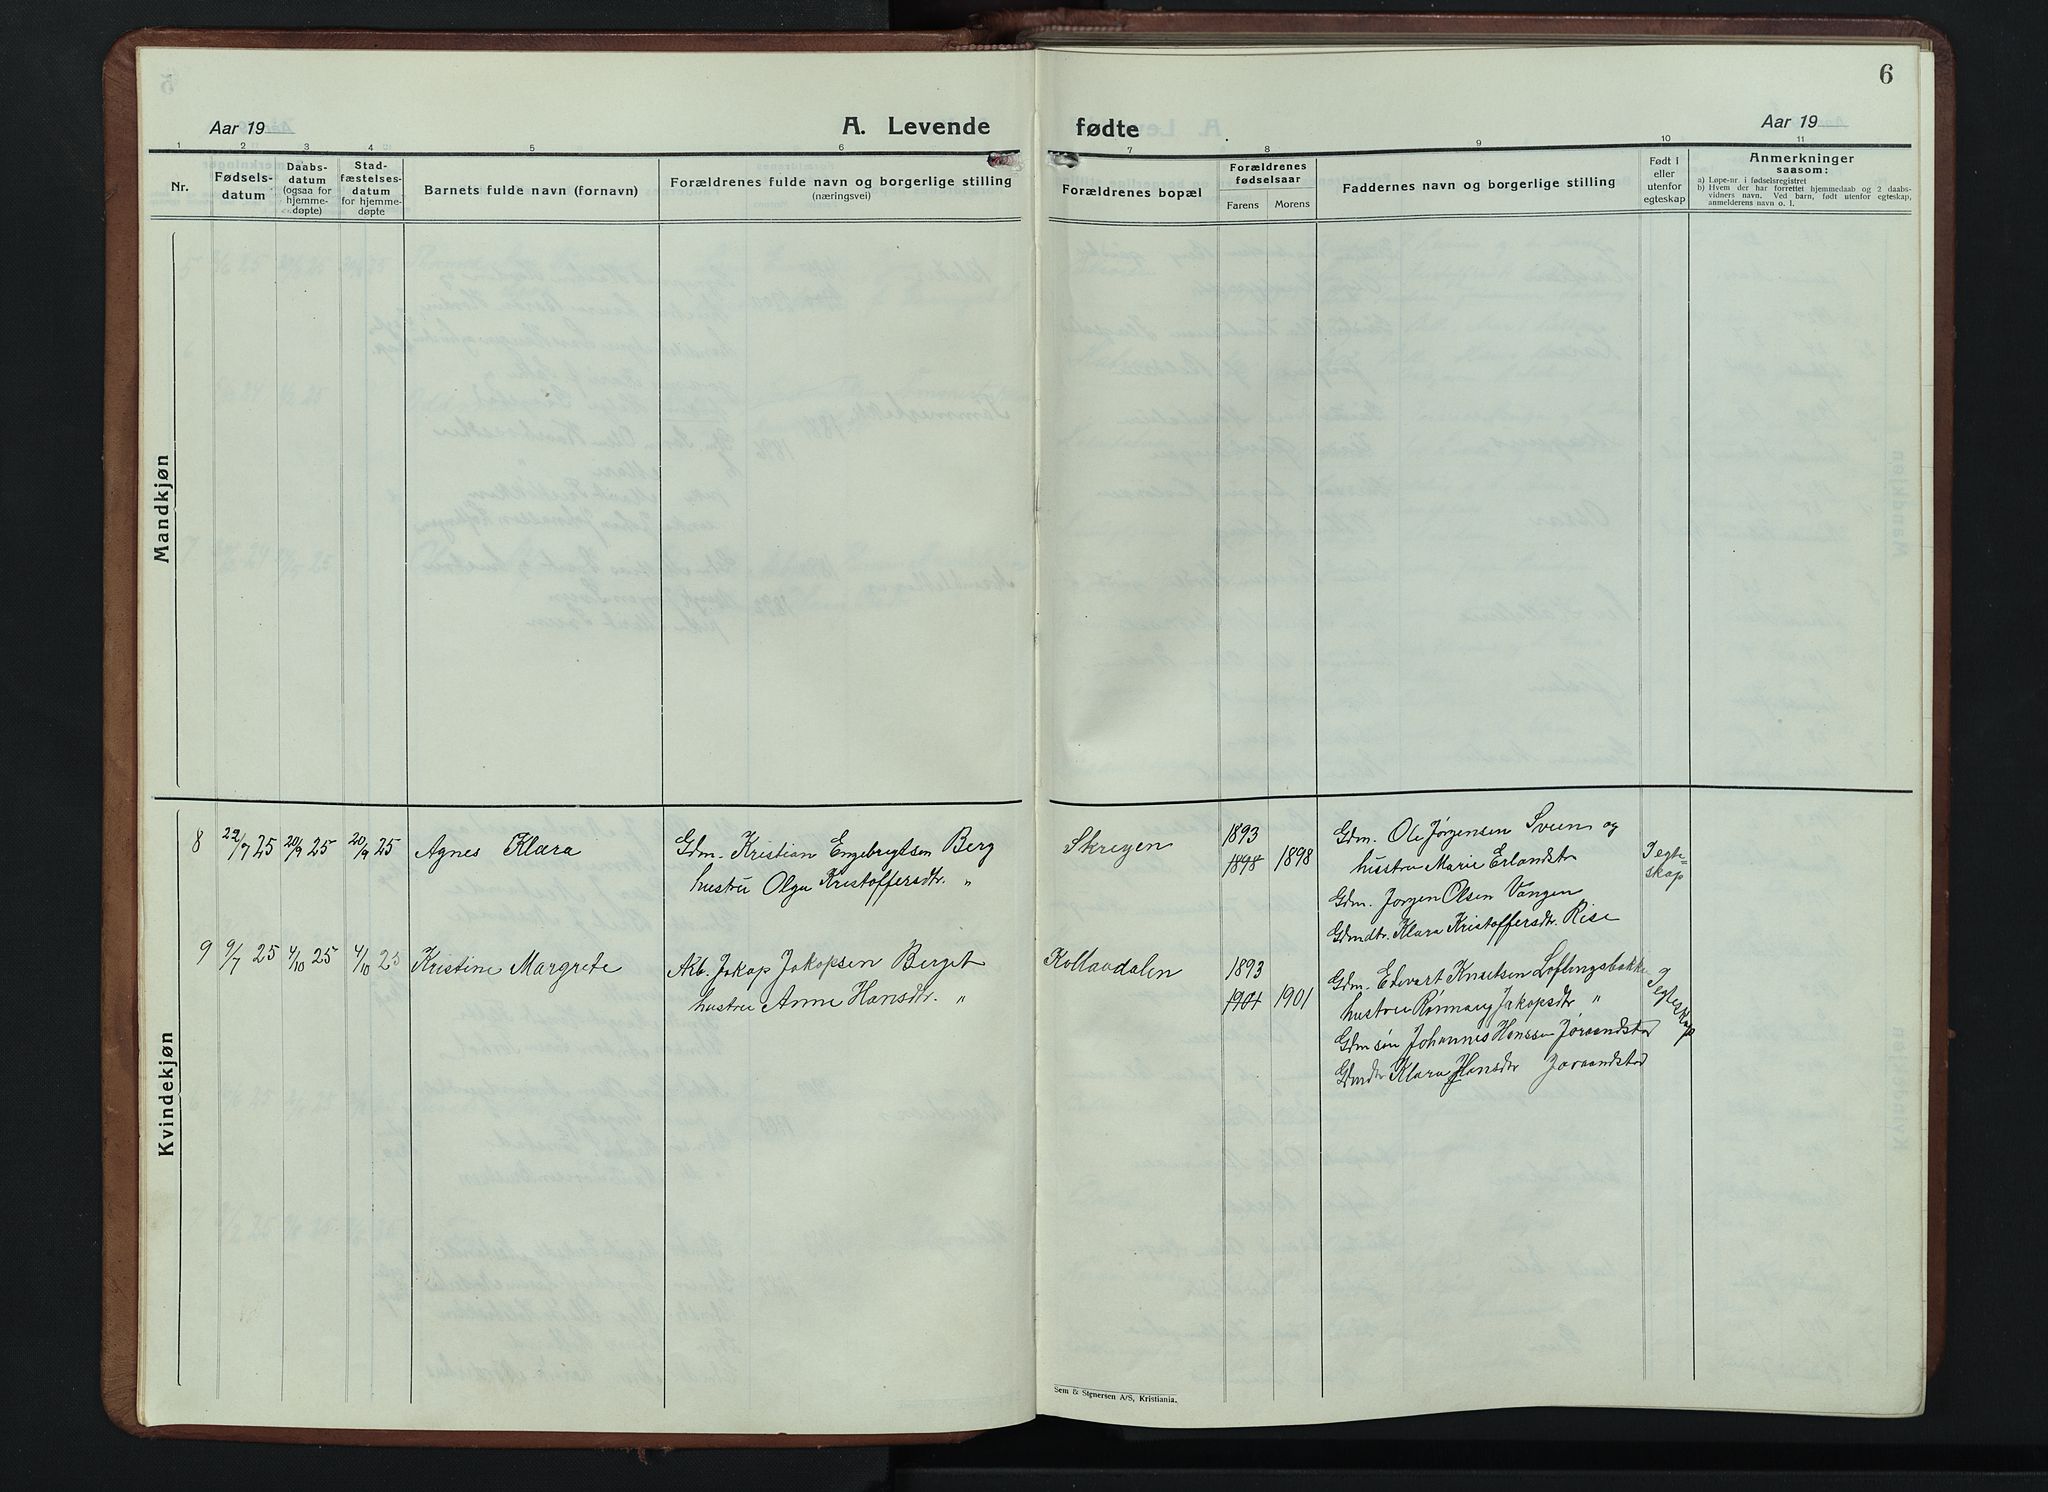 6
Aar 19
A. Levende
fødte
Aar 19
1 2 3 4 5 6 7 8 9 10 11
Nr.
Fødsels-
datum
Daabs-
datum
(ogsaa for
hjemme-
døpte)
Stad-
fæstelses-
datum
for hjemme-
døpte
Barnets fulde navn (fornavn)
Forældrenes fulde navn og borgerlige stilling
(næringsvei)
Forældrenes bopæl
Forældrenes
fødselsaar
Farens Morens
Faddernes navn og borgerlige stilling
Født i
eller
utenfor
egteskap
Anmerkninger
saasom:
a) Løpe-nr. i fødselsregistret
b) Hvem der har forrettet hjemmedaab og 2 daabs-
vidners navn. Ved barn, født utenfor egteskap,
anmelderens navn o. l.
Mandkjøn
Kvindekjøn
8 22/7 25 20/9 25 20/9 25 Agnes Klara
Gdm. Kristian Engebregtsen Berg
hustru Olga Kristoffersdtr. "
Skreyen
1893
1898 1898
Gdm. Ole Jørgensen Sveen og
hustru Marie Erlandsdtr
Gdm. Jørgen Olsen Vangen
Gdmdtr. Klara Kristoffersdtr. Rise
I egte-
skap
9 9/7 25 4/10 25 4/10 25 Kristine Margrete
Arb. Jakop Jakopsen Berget
hustru Anne Hansdtr. "
Kollaadalen
1893
1901 1901
Gdm. Edvart Knutsen Løftingsbakke
hustru Rønnaug Jakopsdtr "
Gdm søn Johannes Hanssen Jøraandstad
Gdmdtr Klara Hansdtr Joraandstad
I egteskap
Sem & Signersen A/S, Kristiania.